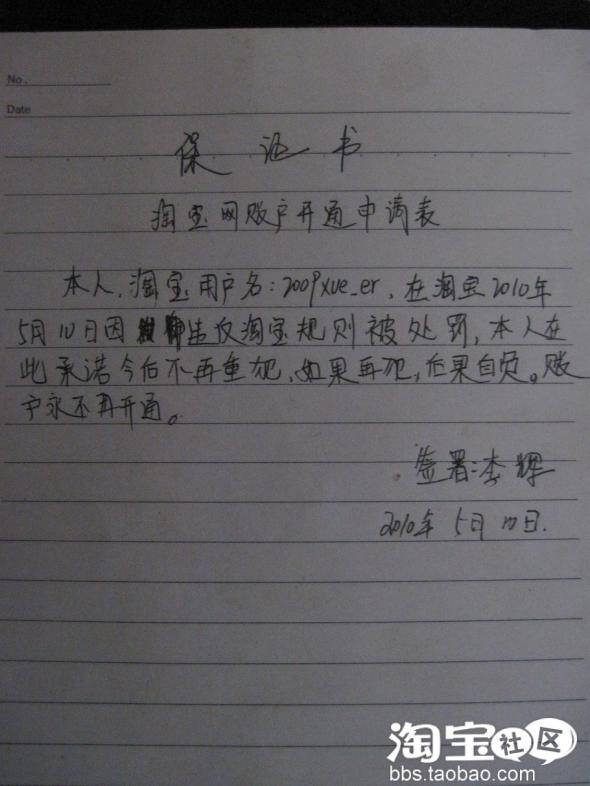 No.
Date
保证书
淘宝网账户开通申请表
本人,淘宝用户名:2009xue_er,在淘宝2010年
5月10日因违反淘宝规则被处罚,本人在
此承诺今后不再重犯,如果再犯,后果自负。账
户永不再开通。
签署:李辉
2010年 5月 10日.
淘宝社区
bbs.taobao.com